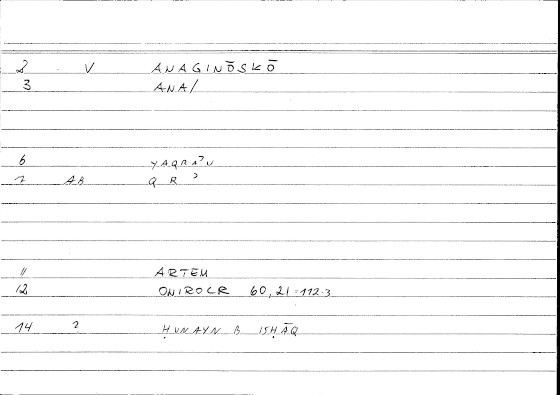 2 V ANAGINŌSKŌ
3 ANA/
6 YAQRAʾU
7 AB Q R ʾ
11 ARTEM
12 ONIROCR 60,21 = 112.3
14 2 ḤUNAYN B ISḤĀQ